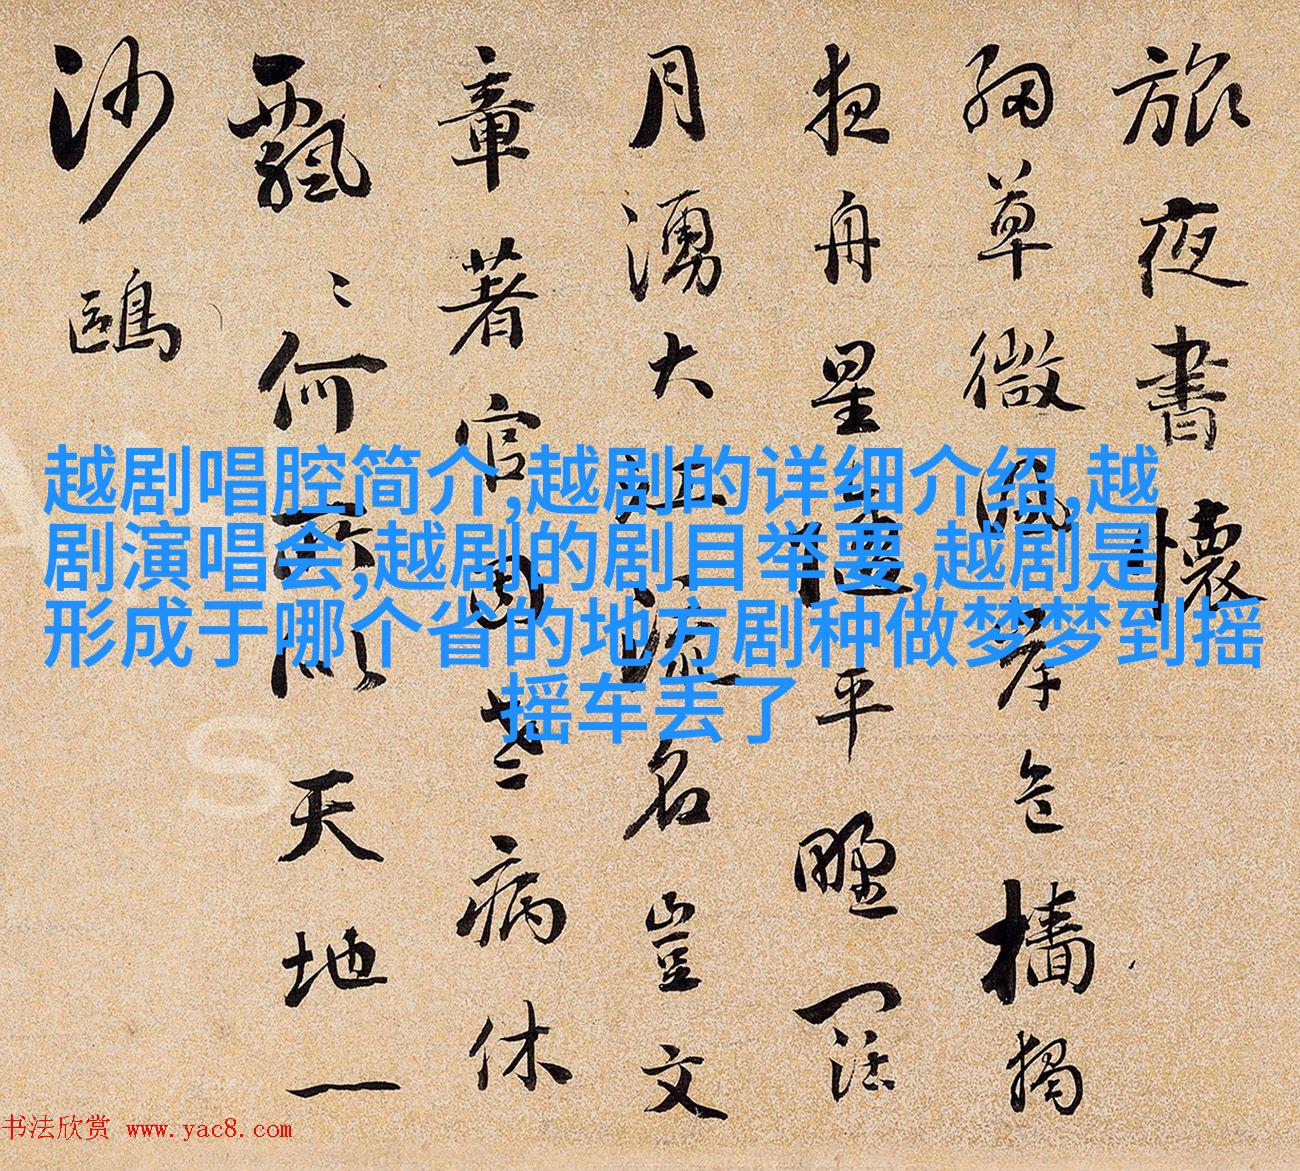 旅夜書懷
細草微風岸危檣獨
夜舟星平野闊
月湧大江流名豈文
章著官因老病休
飄〻何所似天地一
沙鷗
越剧唱腔简介,越剧的详细介绍,越
剧演唱会,越剧的剧目举要,越剧是
形成于哪个省的地方剧种做梦梦到摇
摇车丢了
书法欣赏 www.yac8.com